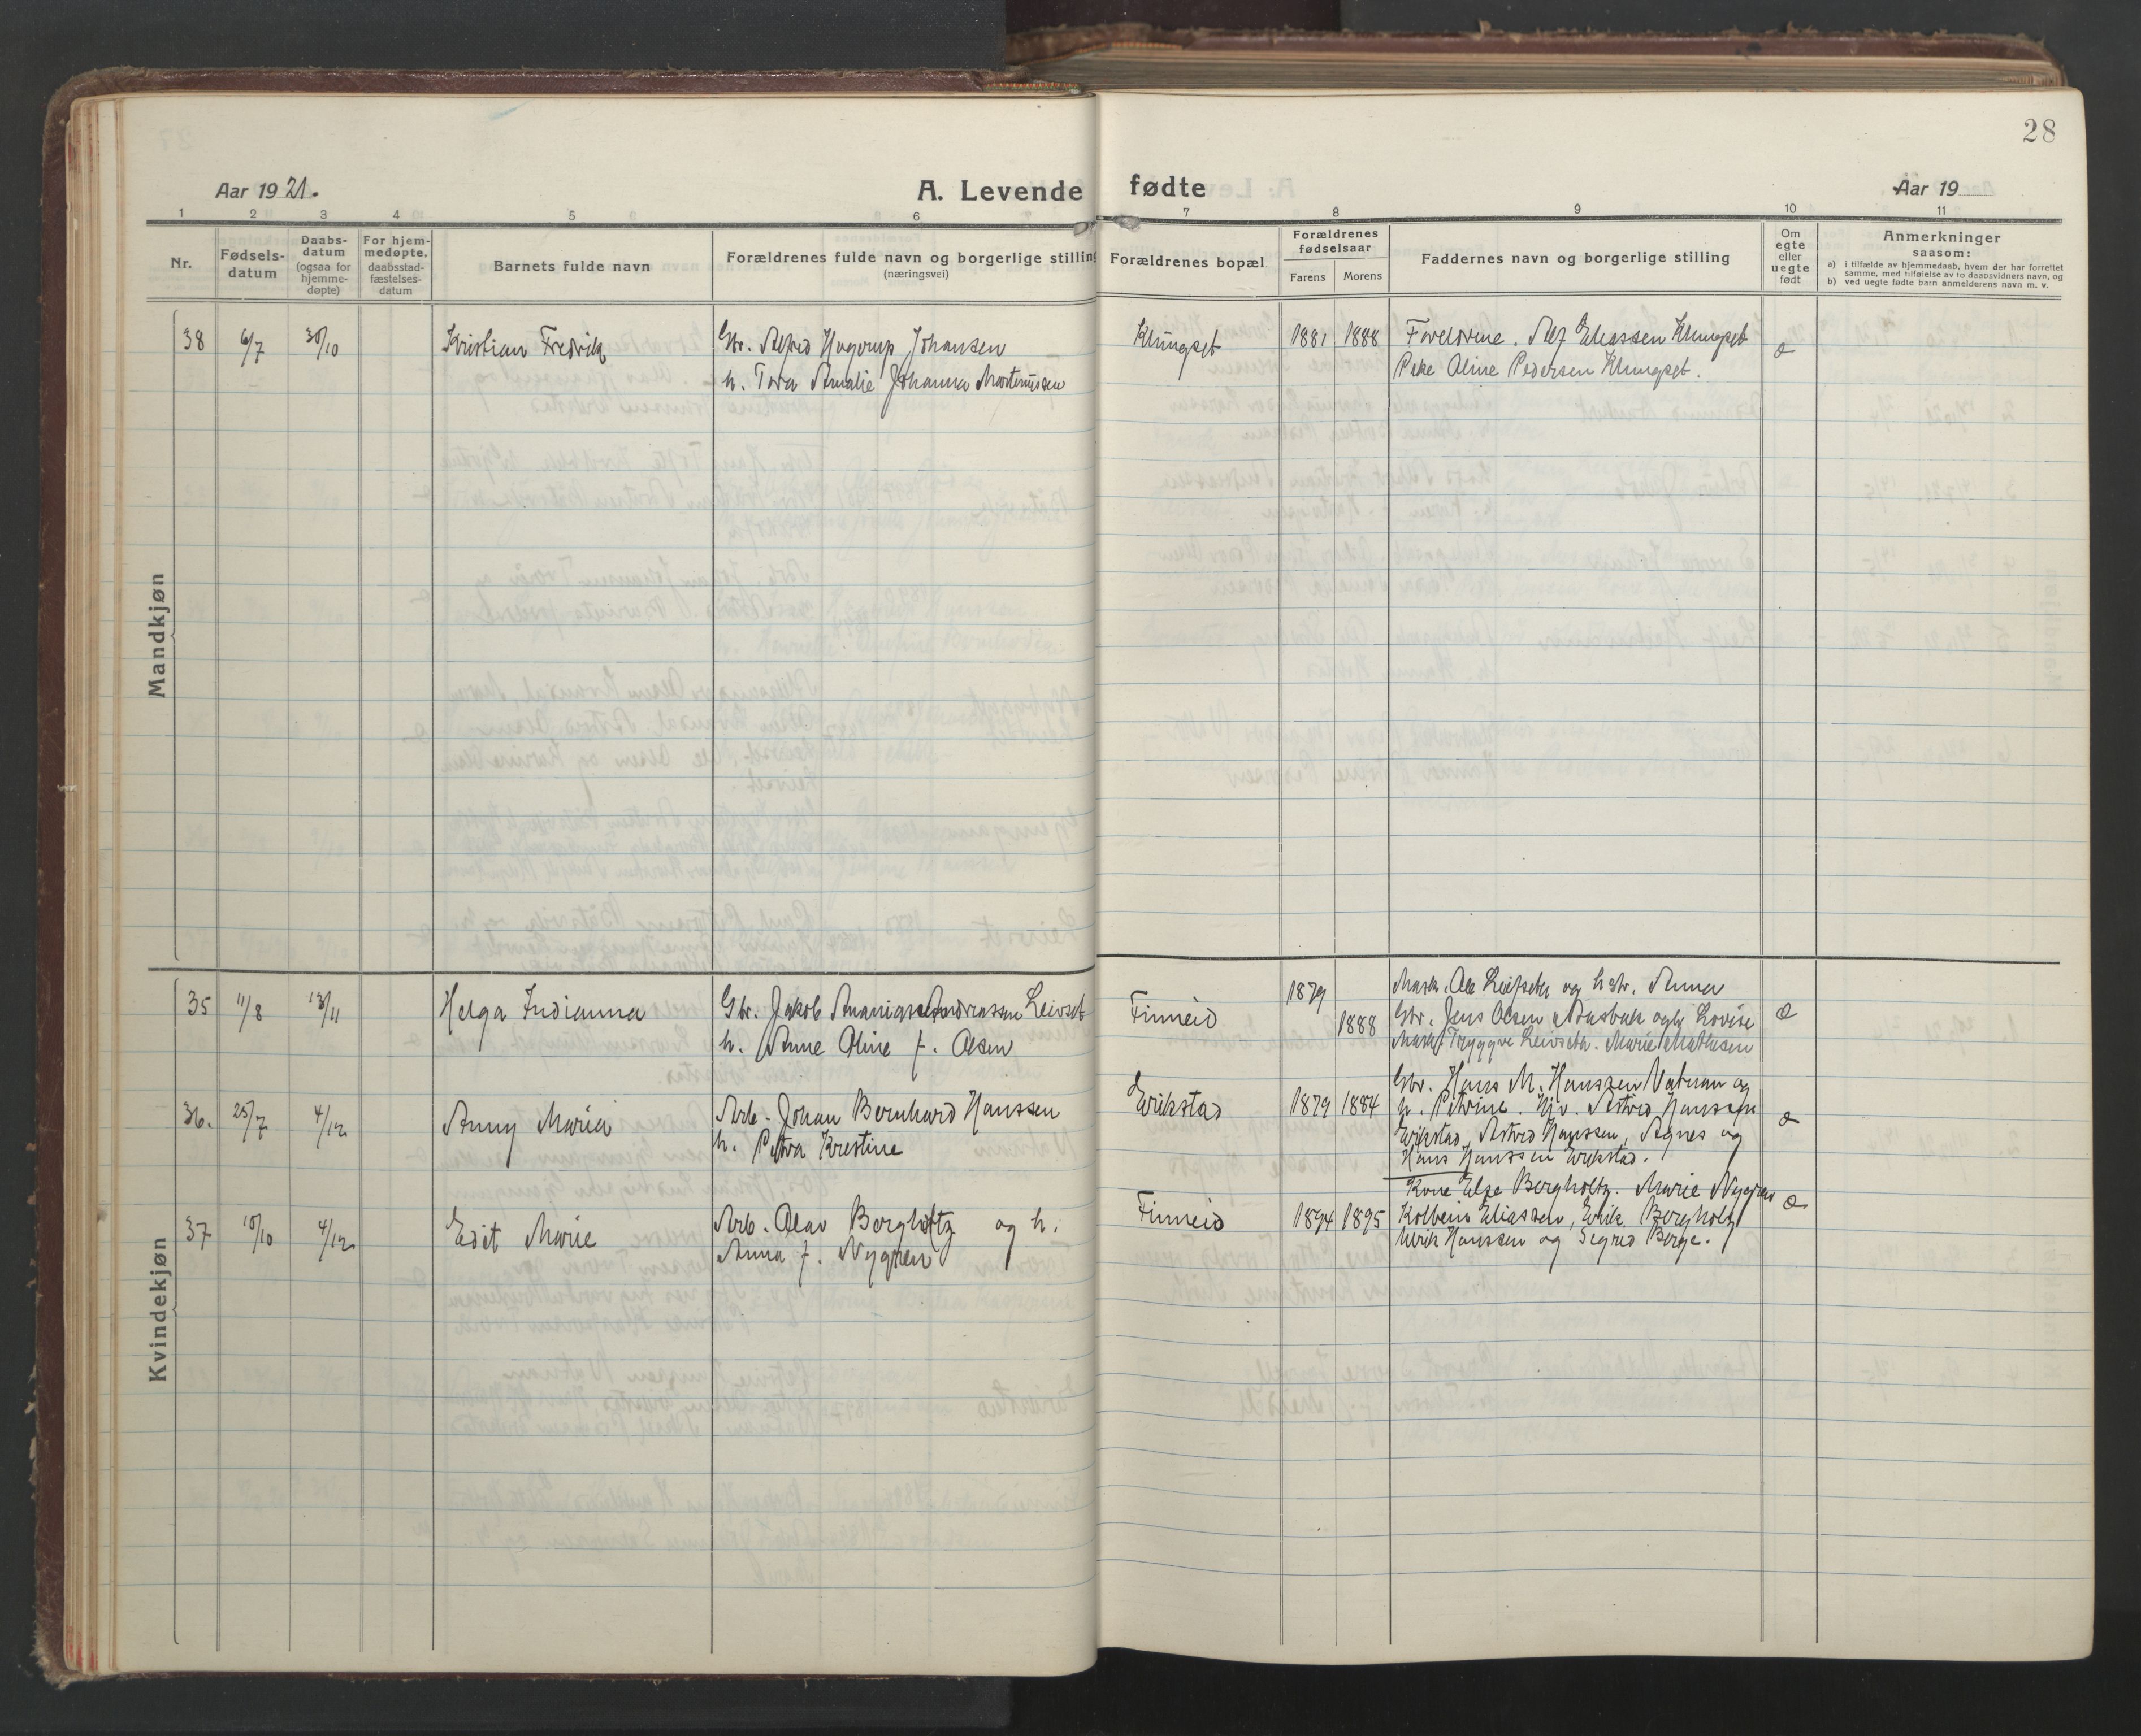 28
Aar 1921.
A. Levende fødte
Aar 19
1 2 3 4 5 6 7 8 9 10 11
Nr.
Fødsels-
datum
Daabs-
datum
(ogsaa for
hjemme-
døpte)
For hjem-
medøpte,
daabsstad-
fæstelses-
datum
Barnets fulde navn
Forældrenes fulde navn og borgerlige stilling
(næringsvei)
Forældrenes bopæl
Forældrenes
fødselsaar
Farens
Morens
Faddernes navn og borgerlige stilling
Om
egte
eller
uegte
født
Anmerkninger
saasom:
a) i tilfælde av hjemmedaab, hvem der har forrettet
samme, med tilføielse av to daabsvidners navn, og
b) ved uegte fødte barn anmelderens navn m. v.
Mandkjøn
38 6/7 30/10 Kristian Fredrik Gbr. Alfred Hagerup Johansen Klungset 1881 1888 Foreldrene. Alf Eliassen Klungset
h. Tora Amalie Johanna Mortensen Pike Oline Pedersen Klungset. e
Kvindekjøn
35 11/8 13/11 Helga Indianna Gbr. Jakob Ananias Andreassen Leivset Finneid 1879 1888 e
h. Anne Oline f. Olsen
Mask. Ole Leifseth og hstr. Anna
Gbr. Jens Olsen og h. Lovise
Mask. Tryggve Leivseth. Marie Mathisen
36. 25/7 4/12 Anny Maria Arb. Johan Bernhard Hanssen Erikstad 1879 1884 e
h. Petra Kristine
Gbr. Hans M. Hanssen Vatnan og
h. Petrine. Astrid Hanssen
Erikstad, Astrid Hanssen, Agnes og
Hans Hanssen Erikstad.
37 10/10 4/12 Edit Marie Arb. Olav Bergholtz og h. Finneid 1894 1895 e
Anna f. Nygren
Kone Else Bergholtz. Marie Nygren
Kolbein Eliassen, Erik Bergholtz
Ulrik Hanssen og Sigrid Berge.